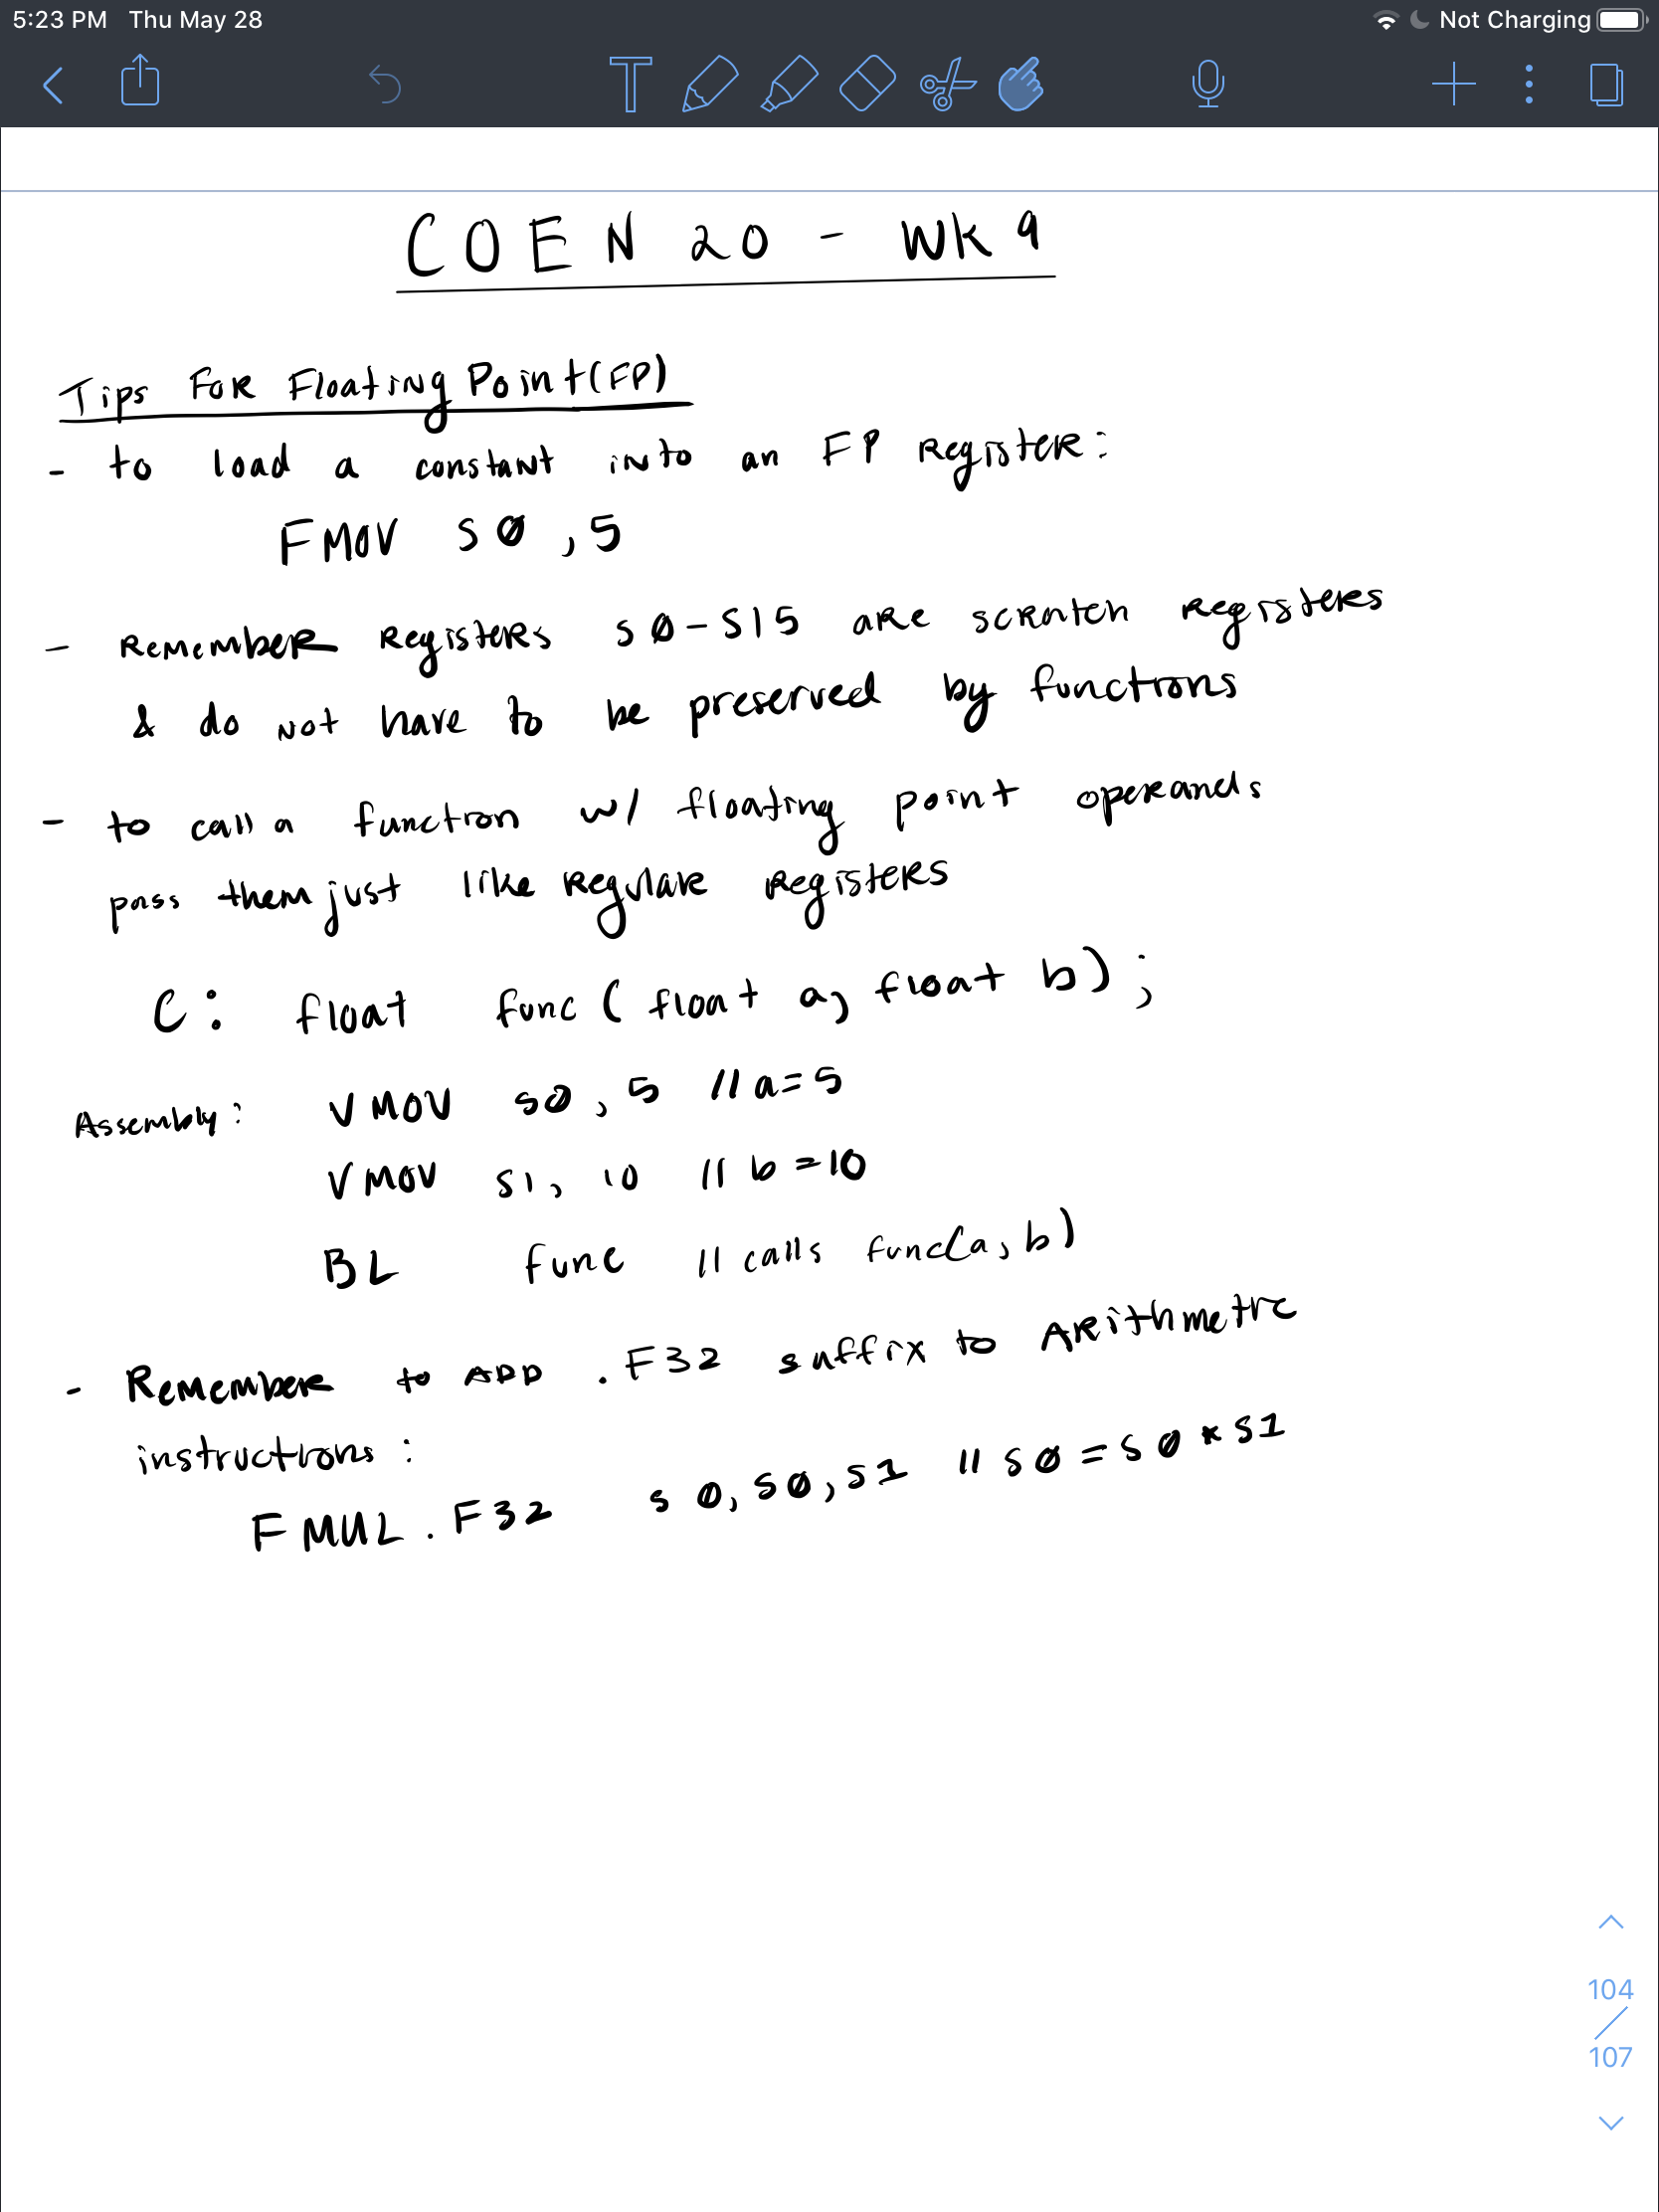 5:23 PM Thu May 28 Not Charging
T
COEN 20 - WK 9
Tips For Floating Point (FP)
- to load a constant into an FP Register:
FMOV S0, 5
- Remember Registers S0-S15 are scratch registers
& do not have to be preserved by functions
- to call a function w/ floating point operands
pass them just like regular registers
C: float func (float a, float b);
Assembly: VMOV S0, 5 // a=5
VMOV S1, 10 // b=10
BL func // calls func(a, b)
- Remember to ADD .F32 suffix to Arithmetic
instructions:
FMUL.F32 S0, S0, S1 // S0 = S0 * S1
104
/
107